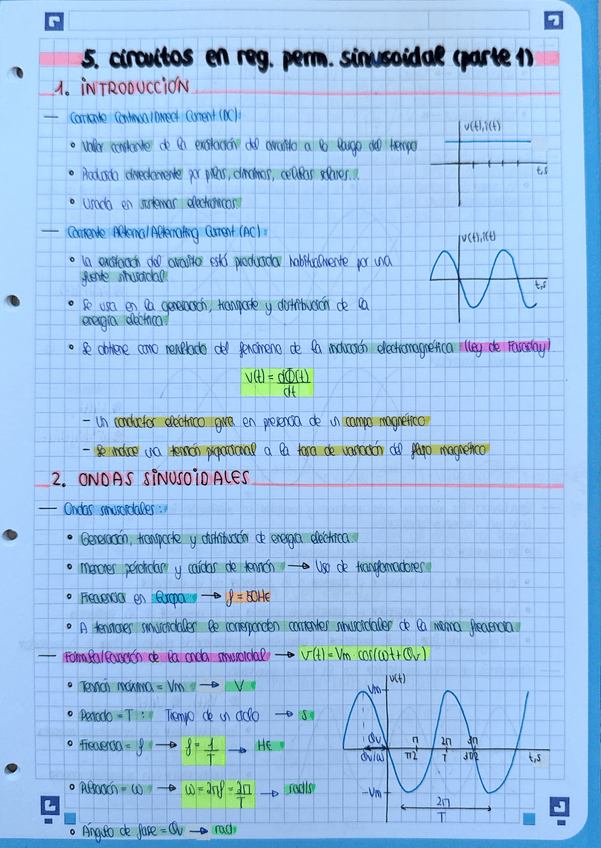 5. circuitos en reg. perm. sinusoidal (parte 1)
1. INTRODUCCIÓN
— Corriente Continua/Direct Current (DC):
• Valor constante de la excitación del circuito a lo largo del tiempo
• Producida directamente por pilas, dinamos, células solares...
• Usada en sistemas electrónicos
v(t), i(t)
t,s
— Corriente Alterna/Alternating Current (AC):
• La excitación del circuito está producida habitualmente por una
fuente sinusoidal
• Se usa en la generación, transporte y distribución de la
energía eléctrica
v(t), i(t)
t,s
• Se obtiene como resultado del fenómeno de la inducción electromagnética (Ley de Faraday)
v(t) = dΦ(t)/dt
– Un conductor eléctrico gira en presencia de un campo magnético
– Se induce una tensión proporcional a la tasa de variación del flujo magnético
2. ONDAS SINUSOIDALES
— Ondas sinusoidales:
• Generación, transporte y distribución de energía eléctrica.
• Menores pérdidas y caídas de tensión → Uso de transformadores
• Frecuencia en Europa → f = 50Hz
• A tensiones sinusoidales le corresponden corrientes sinusoidales de la misma frecuencia
— Fórmula/Ecuación de la onda sinusoidal → v(t) = Vm · cos(ωt + Θv)
• Tensión máxima = Vm → V
• Periodo = T: Tiempo de un ciclo → s
• Frecuencia = f → f = 1/T → Hz
• Pulsación = ω → ω = 2πf = 2π/T → rad/s
• Ángulo de fase = Θv → rad
v(t)
Vm
Θv π 2π 3π
Θv/ω π/2 T 3π/2 t,s
-Vm
2π
T